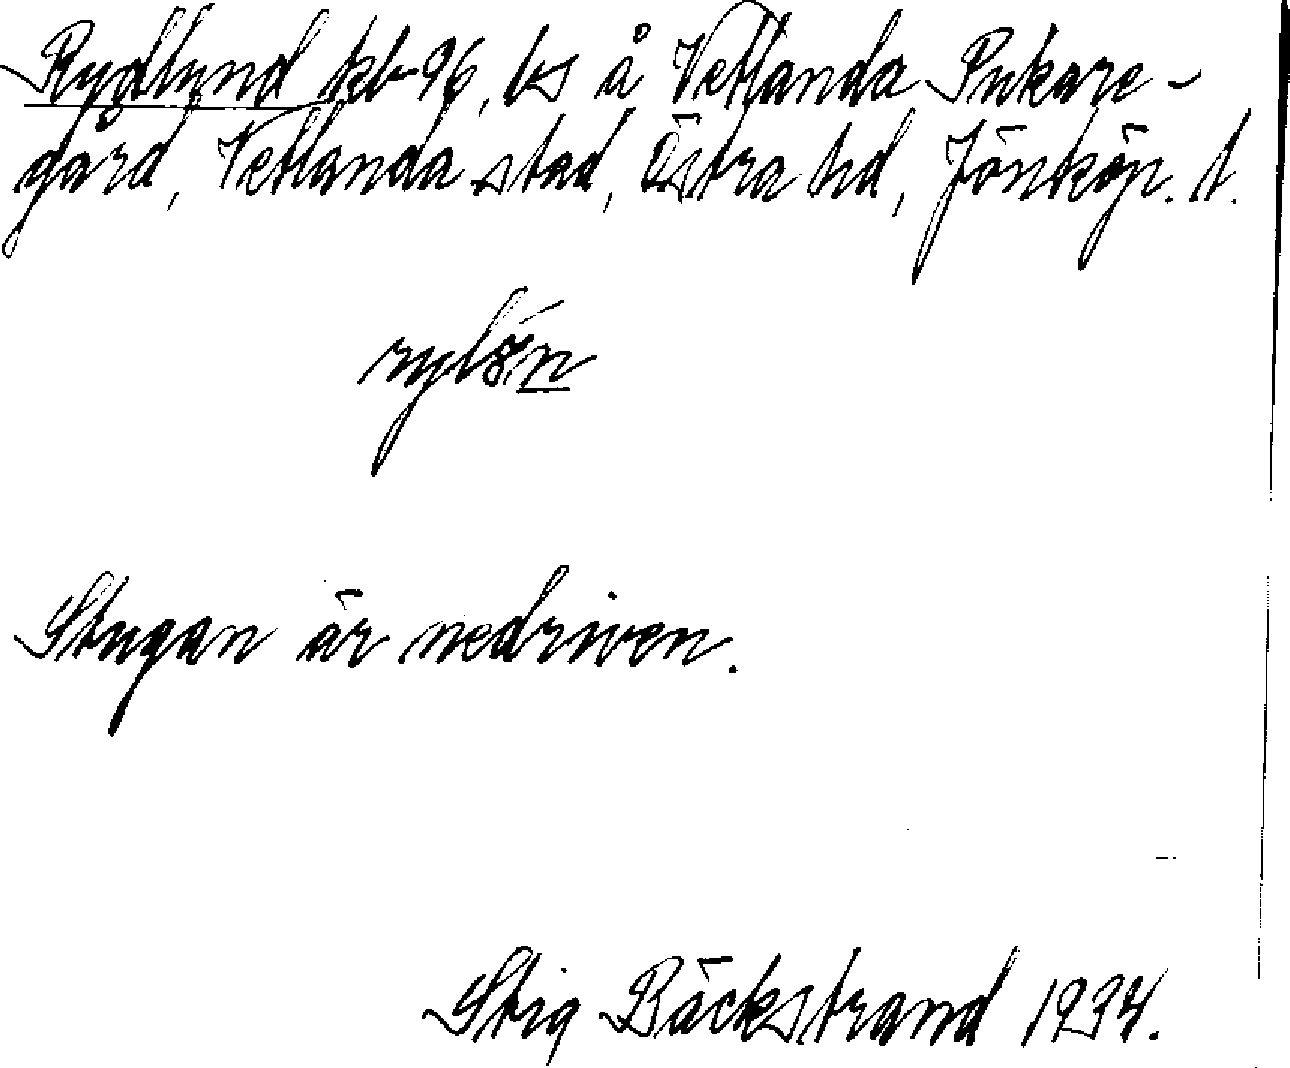 Rydlund kb-96, ls å Vetlanda Pukare-
gård, Vetlanda stad, Östra hd, Jönköp. l.
Stugan är nedriven.
Stig Bäckstrand 1934.